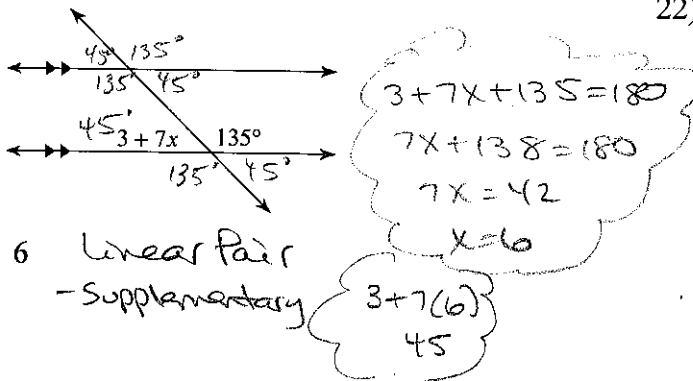 22)
45° 135°
135° 45°
45°
3 + 7x 135°
135° 45°
3+7x+135=180
7x+138=180
7x=42
x=6
6 Linear Pair
-Supplementary
3+7(6)
45